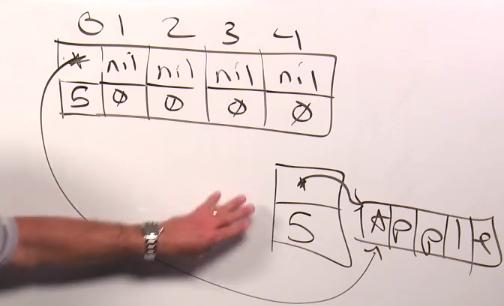 0 1 2 3 4
* nil nil nil nil
5 0 0 0 0
*
5
A p p l e